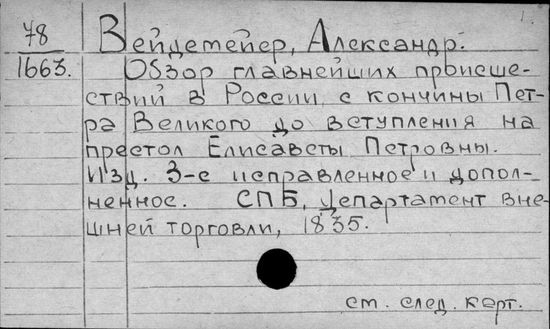 78
1663.
Вейдемейер, Александр.
Обзор главнейших происше-
ствий в России с кончины Пет-
ра Великого до вступления на
престол Елисаветы Петровны.
Изд. 3-е исправленное и допол-
ненное. СПБ, Департамент вне-
шней торговли, 1835.
см. след. карт.